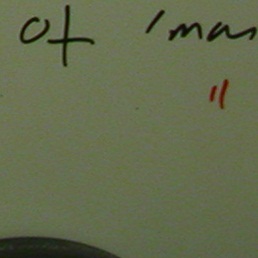 of 'man
"